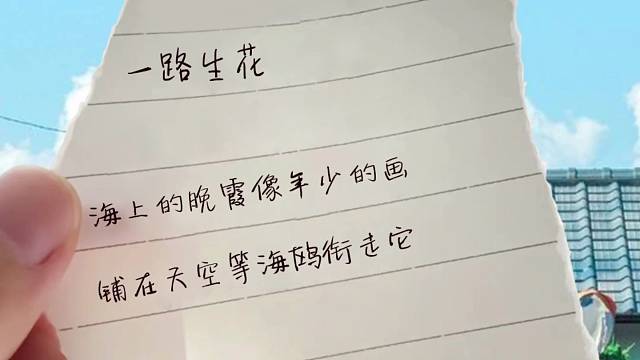 一路生花
海上的晚霞像年少的画
铺在天空等海鸥衔走它